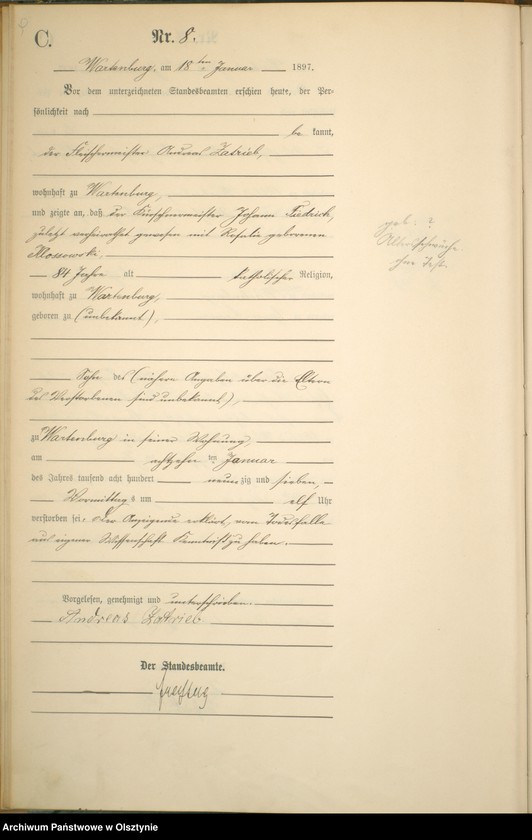 C.
Nr. 8.
Wartenburg, am 18ten Januar 1897.
Vor dem unterzeichneten Standesbeamten erschien heute, der Per-
sönlichkeit nach
be kannt,
der Fleischermeister Andreas Zatrieb,
wohnhaft zu Wartenburg,
und zeigte an, daß der Kürschnermeister Johann Fiedrich,
zuletzt verheirathet gewesen mit Rosalie geborenen
Klossowski,
84 Jahre alt katholischer Religion,
wohnhaft zu Wartenburg,
geboren zu (unbekannt),
Sohn des (nähere Angaben über die Eltern
des Verstorbenen sind unbekannt),
zu Wartenburg in seiner Wohnung,
am achtzehn ten Januar
des Jahres tausend acht hundert neun zig und sieben,
Vormittag s um elf Uhr
verstorben sei. Der Anzeigende erklärt, vom Todesfalle
aus eigener Wissenschaft Kenntniß zu haben.
Vorgelesen, genehmigt und unterschrieben
Andreas Zatrieb
Der Standesbeamte.
geb. ?
Altersschwäche
ohne Test.
Archiwum Państwowe w Olsztynie